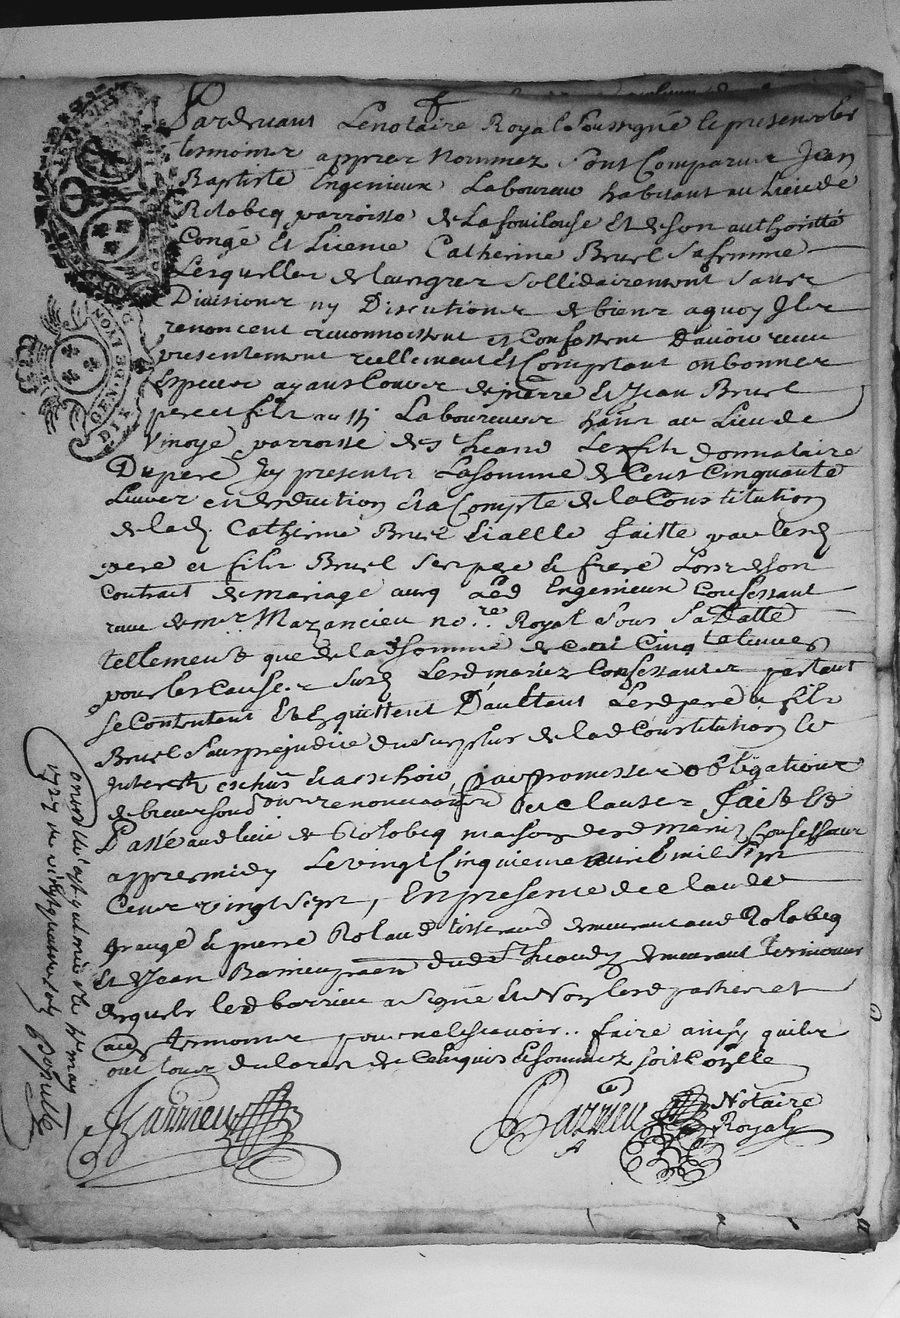 Pardevant Lenotaire Royal Soussigné et presents les
tesmoings apprez Nommez Sont Comparus Jean
Baptiste Engenieux Laboureur habitant au Lieu de
Rolobeq parroisse de Lafouilouse Et de son authoritté
Congé Et Licence Catherine Bruel Safemme
Lesquelles de leurs grez Sollidairement Sans
Divisions ny Discutions de biens aquoy Ils
renoncent reconnoissent et Confessent D'avoir receu
presentement reellement Et Comptant en bonnes
Especes ayans Cours de pierre Et Jean Bruel
pere et fils aussi Laboureurs au Lieu de
Vinoye parroisse de St heand Le fils donnataire
Du pere Icy presents La somme de Cent Cinquante
Livres en deduction Et a Compte de la Constitution
de lad Catherine Bruel a elle faitte par lesd
pere et fils Bruel ses pere & frere Lors de son
Contrat de mariage avec Led Engenieux Confessant
receu de mr Mazancieu nore Royal Sous Sa datte
tellement que de lad somme de cent Cinqte livres
pour les Causes Susd Lesd mariez Confessants partant
se Contentent Et En quittent D'aultant Lesd pere & fils
Bruel Sans prejudice du Surplus de lad Constitution Et
Interests par Promesses obligations
de biens renonciations clauses Fait Et
Passé aud lieu de Rolobeq maison desd mariez Confessans
apprez midy Le vingt Cinquieme avril mil sept
Cent vingt sept, En presence de Claude
grangé & pierre Rolaud tisserand demeurant aud Rolobeq
Et Jean Barrieu dud St heand y demeurant tesmoins
desquels led barrieu a signé Et Non lesd parties et
autres tesmoins pour ne le scavoir .. faire ainsy quils
ont dit de ce enquis Et sommez soit Conlle
Barrieu
Barrieu Notaire
Royal
GEN. DE LYON
DIX
a St heand
1727